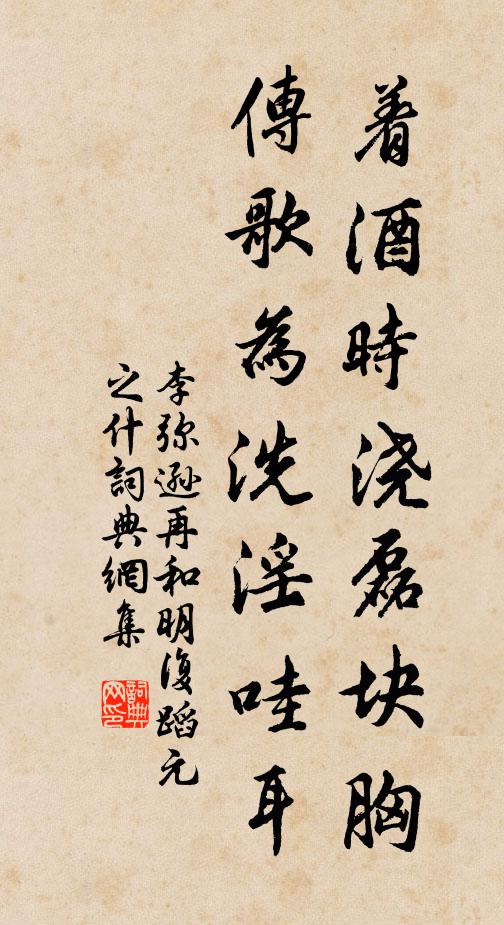 着酒時浇磊块胸
傳歌為洗淫哇耳
李弥遜再和明復蹈元
之什詞典網集
詞典
网印